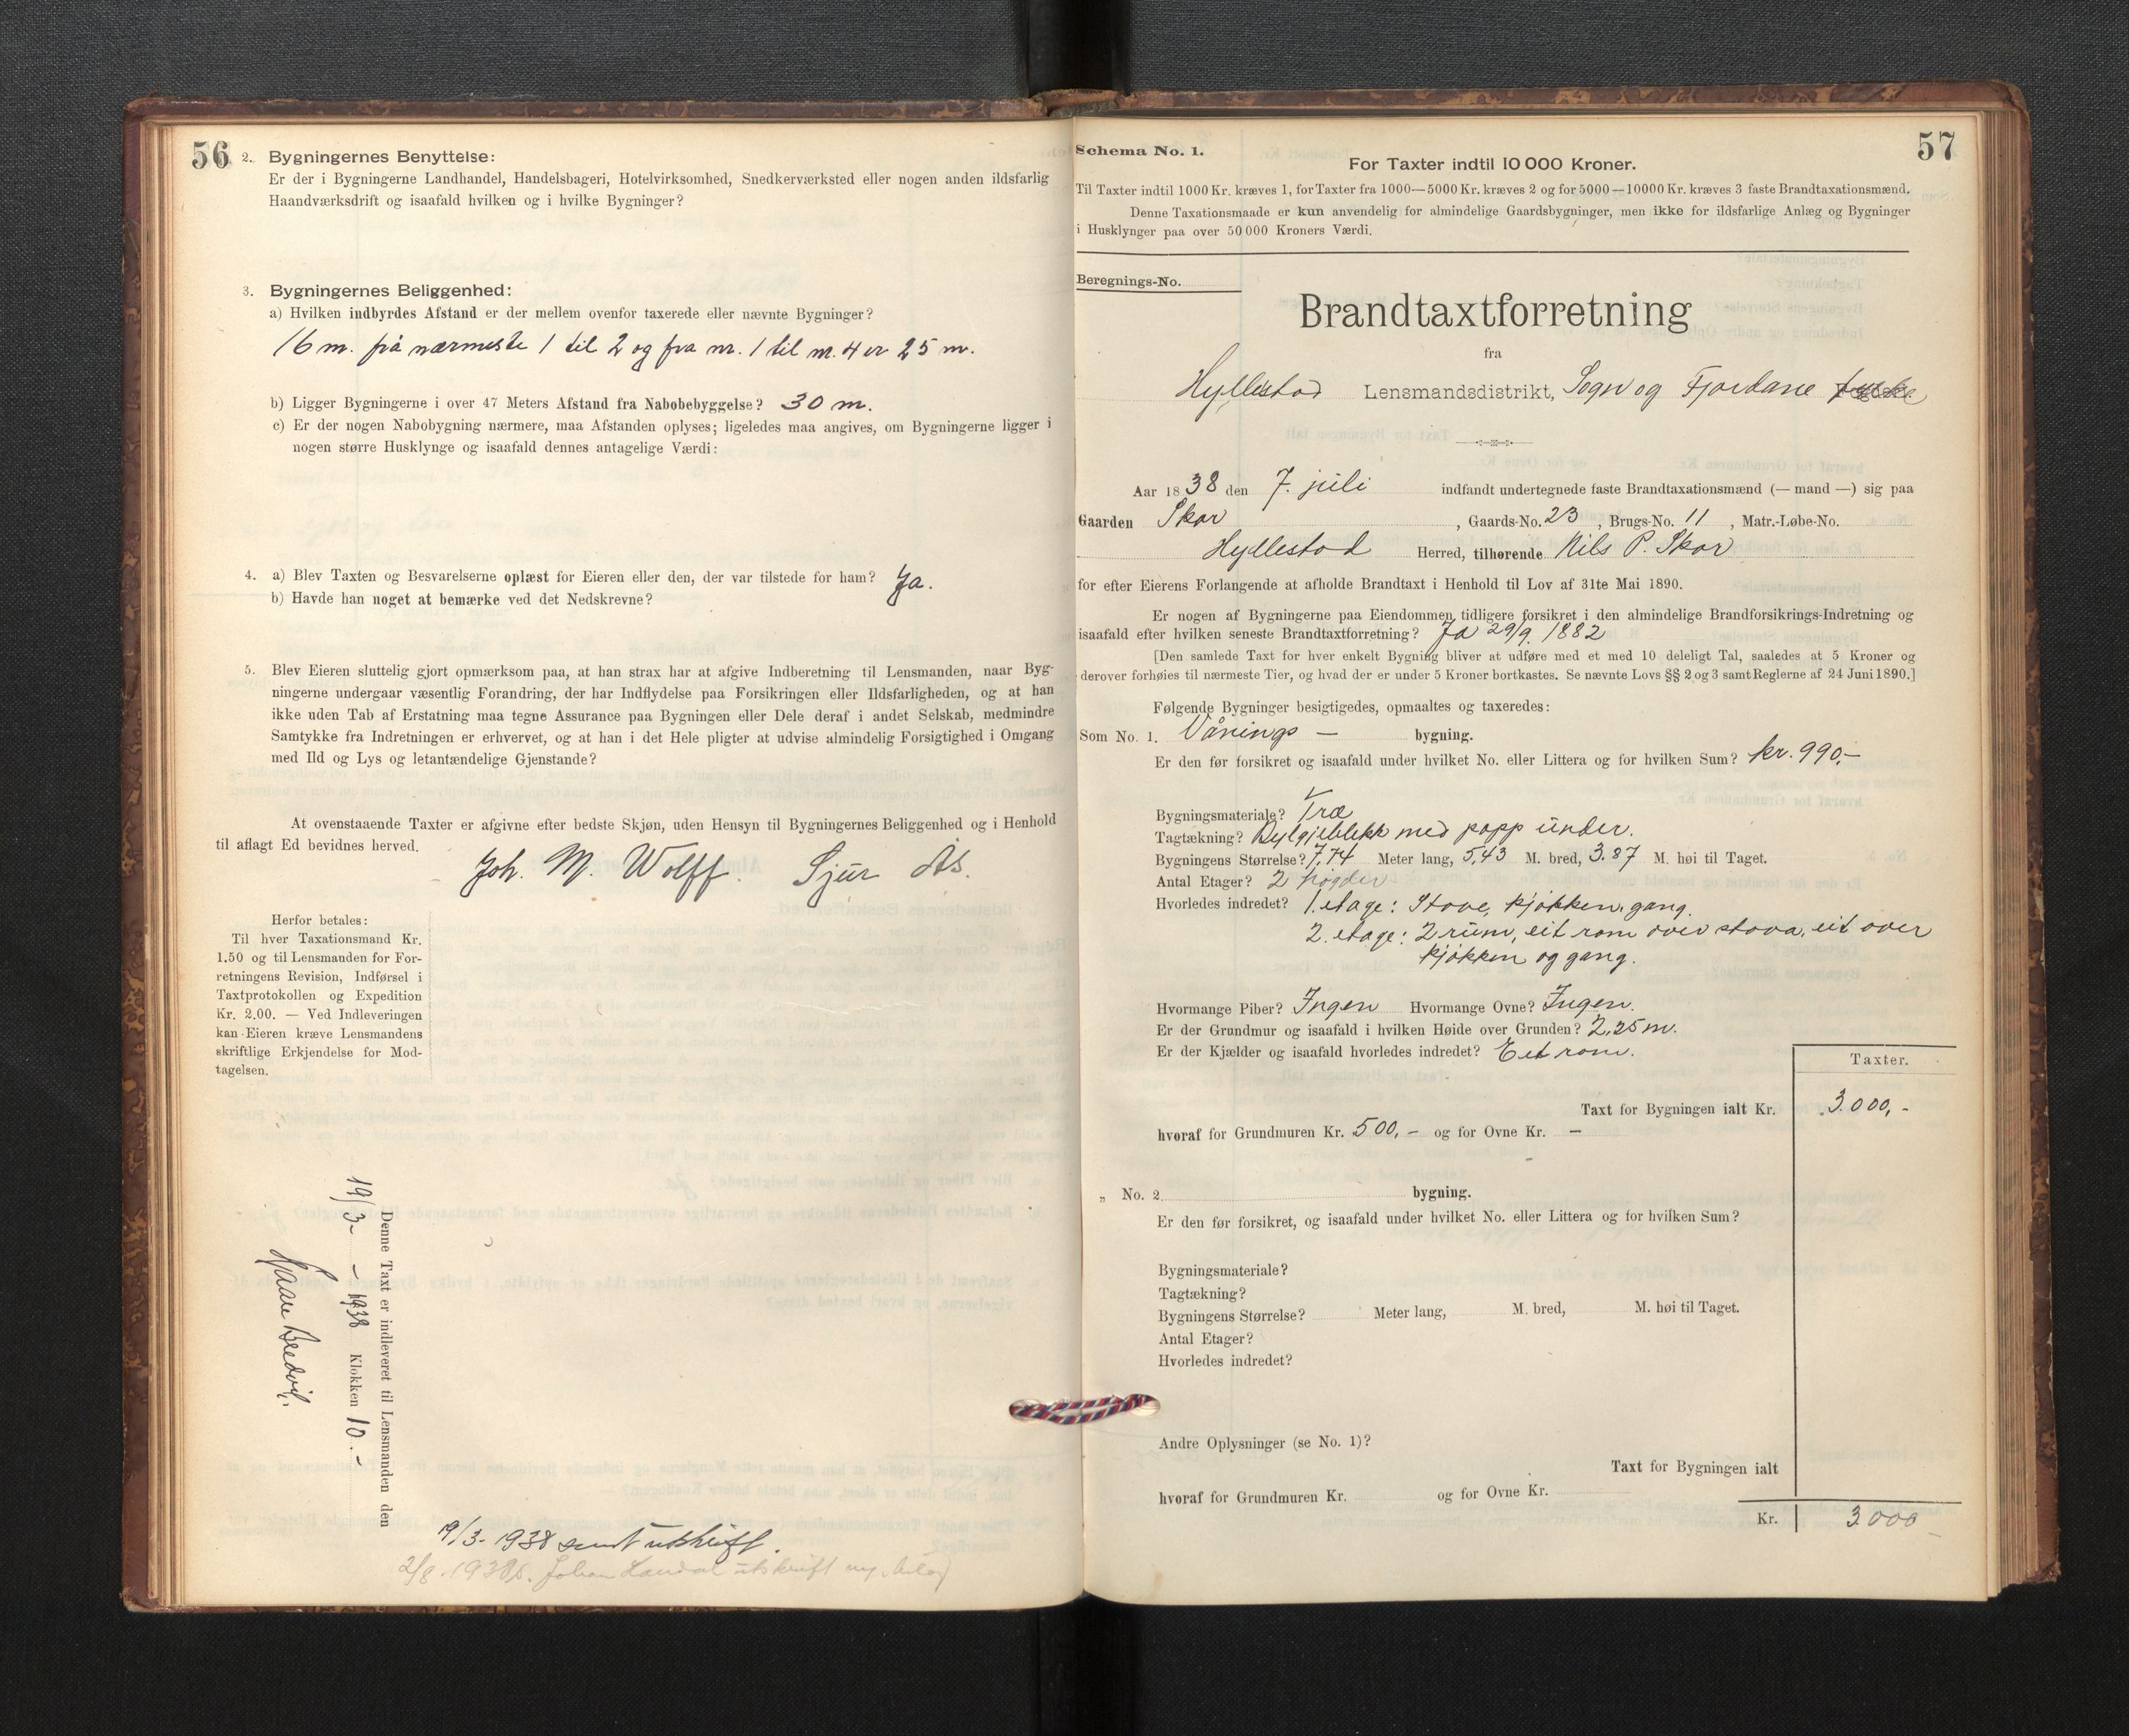 56
2. Bygningernes Benyttelse:
Er der i Bygningerne Landhandel, Handelsbageri, Hotelvirksomhed, Snedkerværksted eller nogen anden ildsfarlig
Haandværksdrift og isaafald hvilken og i hvilke Bygninger?
3. Bygningernes Beliggenhed:
a) Hvilken indbyrdes Afstand er der mellem ovenfor taxerede eller nævnte Bygninger?
16 m. frå nærmeste 1 til 2 og fra nr. 1 til nr. 4 er 25 m.
b) Ligger Bygningerne i over 47 Meters Afstand fra Nabobebyggelse? 30 m.
c) Er der nogen Nabobygning nærmere, maa Afstanden oplyses; ligeledes maa angives, om Bygningerne ligger i
nogen større Husklynge og isaafald dennes antagelige Værdi:
4. a) Blev Taxten og Besvarelserne oplæst for Eieren eller den, der var tilstede for ham? Ja.
b) Havde han noget at bemærke ved det Nedskrevne?
5. Blev Eieren sluttelig gjort opmærksom paa, at han strax har at afgive Indberetning til Lensmanden, naar Byg-
ningerne undergaar væsentlig Forandring, der har Indflydelse paa Forsikringen eller Ildsfarligheden, og at han
ikke uden Tab af Erstatning maa tegne Assurance paa Bygningen eller Dele deraf i andet Selskab, medmindre
Samtykke fra Indretningen er erhvervet, og at han i det Hele pligter at udvise almindelig Forsigtighed i Omgang
med Ild og Lys og letantændelige Gjenstande?
At ovenstaaende Taxter er afgivne efter bedste Skjøn, uden Hensyn til Bygningernes Beliggenhed og i Henhold
til aflagt Ed bevidnes herved.
Joh. M. Wolff. Sjur Ås.
Herfor betales:
Til hver Taxationsmand Kr.
1.50 og til Lensmanden for For-
retningens Revision, Indførsel i
Taxtprotokollen og Expedition
Kr. 2.00. — Ved Indleveringen
kan Eieren kræve Lensmandens
skriftlige Erkjendelse for Mod-
tagelsen.
Denne Taxt er indleveret til Lensmanden den
19/3 - 1938 Klokken 10.-
19/3-1938 sendt utskrift.
2/8 1938 Johan Landal utskrift
57
Schema No. 1.
For Taxter indtil 10 000 Kroner.
Til Taxter indtil 1000 Kr. kræves 1, for Taxter fra 1000—5000 Kr. kræves 2 og for 5000—10000 Kr. kræves 3 faste Brandtaxationsmænd.
Denne Taxationsmaade er kun anvendelig for almindelige Gaardsbygninger, men ikke for ildsfarlige Anlæg og Bygninger
i Husklynger paa over 50 000 Kroners Værdi.
Beregnings-No.
Brandtaxtforretning
fra
Hyllestad Lensmandsdistrikt, Sogn og Fjordane
Aar 1838 den 7. juli indfandt undertegnede faste Brandtaxationsmænd (— mand —) sig paa
Gaarden Skor, Gaards-No. 23, Brugs-No. 11, Matr.-Løbe-No.
Hyllestad Herred, tilhørende Nils P. Skor
for efter Eierens Forlangende at afholde Brandtaxt i Henhold til Lov af 31te Mai 1890.
Er nogen af Bygningerne paa Eiendommen tidligere forsikret i den almindelige Brandforsikrings-Indretning og
isaafald efter hvilken seneste Brandtaxtforretning? Ja 29/9. 1882
[Den samlede Taxt for hver enkelt Bygning bliver at udføre med et med 10 deleligt Tal, saaledes at 5 Kroner og
derover forhøies til nærmeste Tier, og hvad der er under 5 Kroner bortkastes. Se nævnte Lovs §§ 2 og 3 samt Reglerne af 24 Juni 1890.]
Følgende Bygninger besigtigedes, opmaaltes og taxeredes:
Som No. 1. Vånings — bygning.
Er den før forsikret og isaafald under hvilket No. eller Littera og for hvilken Sum? kr. 990,-
Bygningsmateriale? Træ
Tagtækning? Bylgjeblekk med papp under.
Bygningens Størrelse? 7,74 Meter lang, 5,43 M. bred, 3.87 M. høi til Taget.
Antal Etager? 2 høgder
Hvorledes indredet? 1. etage: Stove, kjøkken, gang.
2. etage: 2 rum, eit rom over stova, eit over
kjøkken og gang.
Hvormange Piber? Ingen Hvormange Ovne? Ingen.
Er der Grundmur og isaafald i hvilken Høide over Grunden? 2,25 m.
Er der Kjælder og isaafald hvorledes indredet? Eit rom.
Taxter.
Taxt for Bygningen ialt Kr. 3.000,-
hvoraf for Grundmuren Kr. 500,- og for Ovne Kr. —
„ No. 2 bygning.
Er den før forsikret, og isaafald under hvilket No. eller Littera og for hvilken Sum?
Bygningsmateriale?
Tagtækning?
Bygningens Størrelse? Meter lang, M. bred, M. høi til Taget.
Antal Etager?
Hvorledes indredet?
Andre Oplysninger (se No. 1)?
Taxt for Bygningen ialt
hvoraf for Grundmuren Kr. og for Ovne Kr.
Kr. 3.000